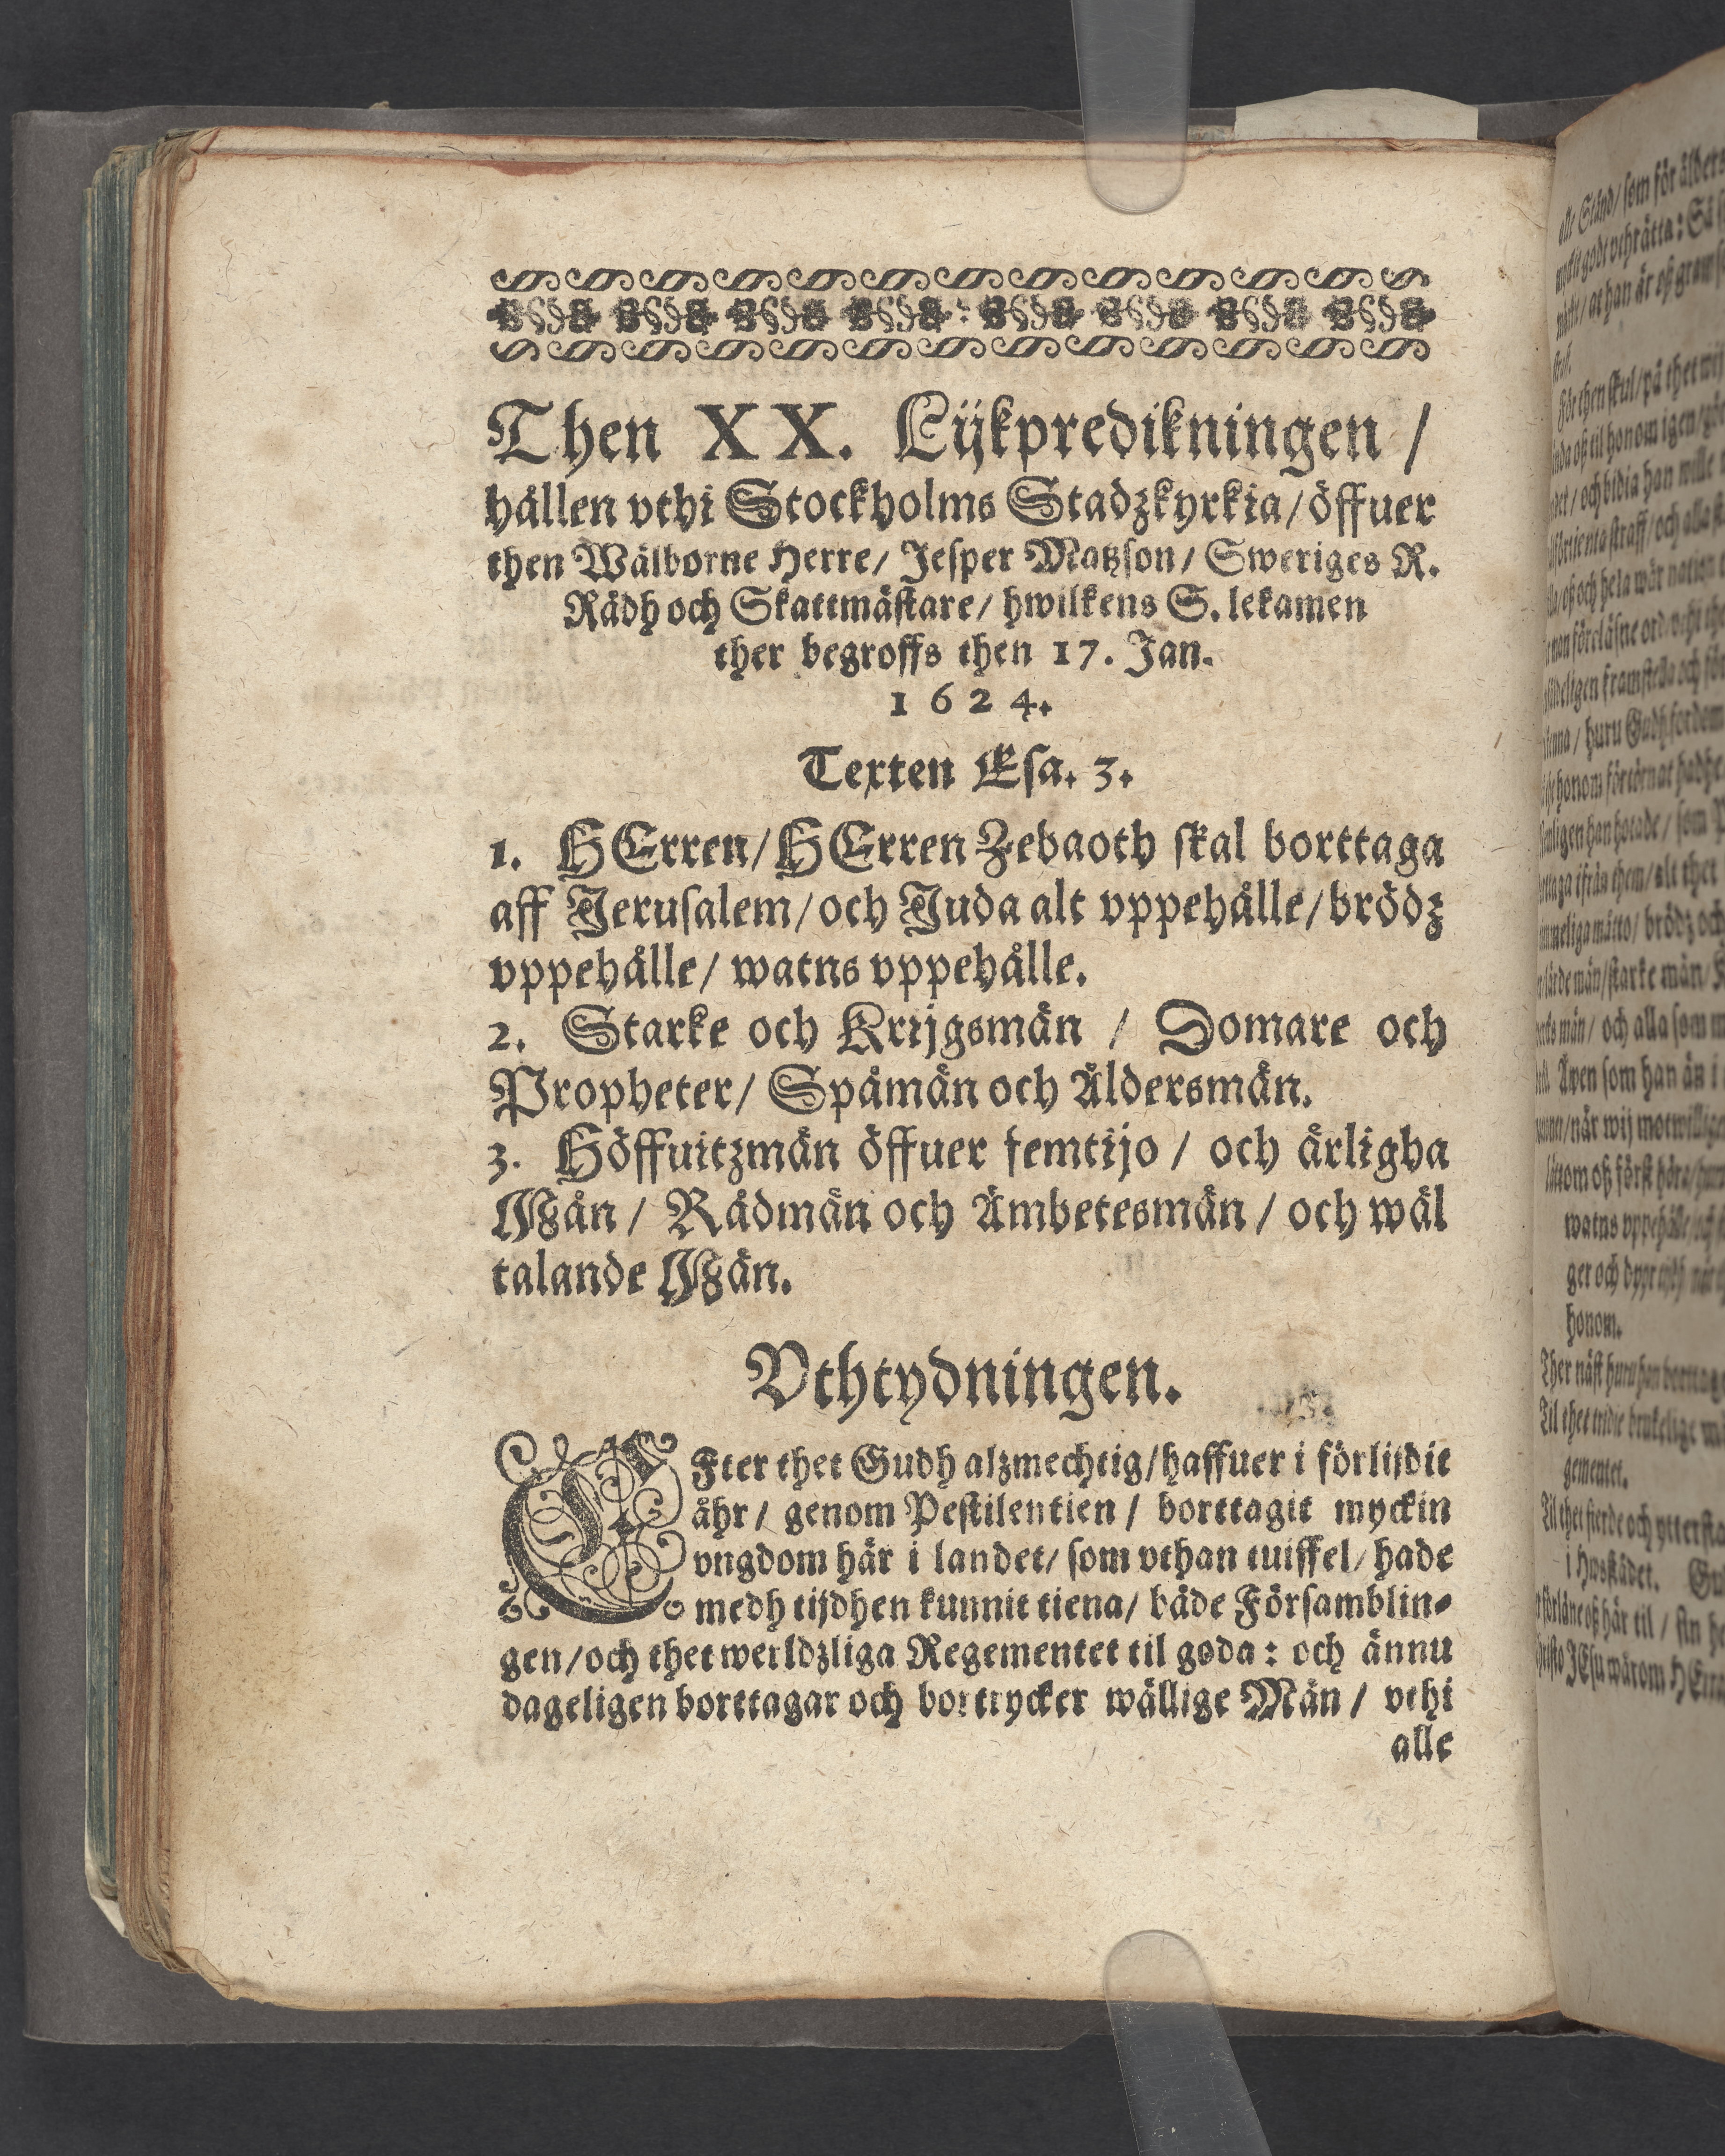 Then XX. Lijkpredikningen /
hållen vthi Stockholms Stadzkyrkia / öffuer
then Wälborne Herre / Jesper Matzson / Sweriges R.
Rådh och Skattmästare / hwilkens S. lekamen
ther begroffs then 17. Jan.
1624.
Texten Esa. 3.
1. HErren / HErren Zebaoth skal borttaga
aff Jerusalem / och Juda alt vppehålle / brödz
vppehålle / watns vppehålle.
2. Starke och Krijgsmän / Domare och
Propheter / Spåmän och Äldersmän.
3. Höffuitzmän öffuer femtijo / och ärligha
Män / Rådmän och Ämbetesmän / och wäl
talande Män.
Vthtydningen.
EFter thet Gudh alzmechtig / haffuer i förlijdit
åhr / genom Pestilentien / borttagit myckin
vngdom här i landet / som vthan tuiffel / hade
medh tijdhen kunnit tiena / både Församblin-
gen / och thet werldzliga Regementet til goda : och ännu
dageligen borttagar och bortrycker wällige Män / vthi
alle
alle Stånd / som för ålders
godt vthrätta : Så
at han är oß gram
För then skul / på thet wij
oß til honom igen
och bidia han wille
straff / och alla
oß och hela wår nation
ord
framstella och för
huru Gudh fordom
honom förtörnat hadhe
han hotade / som
ifrån them / alt thet
brödz och
män / starke män
män / och alla som
Även som han än i
när wij motwillige
oß först höra
watns vppehålle
ger och
honom.
Ther näst huru han borttag
Til thet tridie
gementet.
Til thet fierde och ytterst
i
oß här til / sin
JEsu wårom HErra